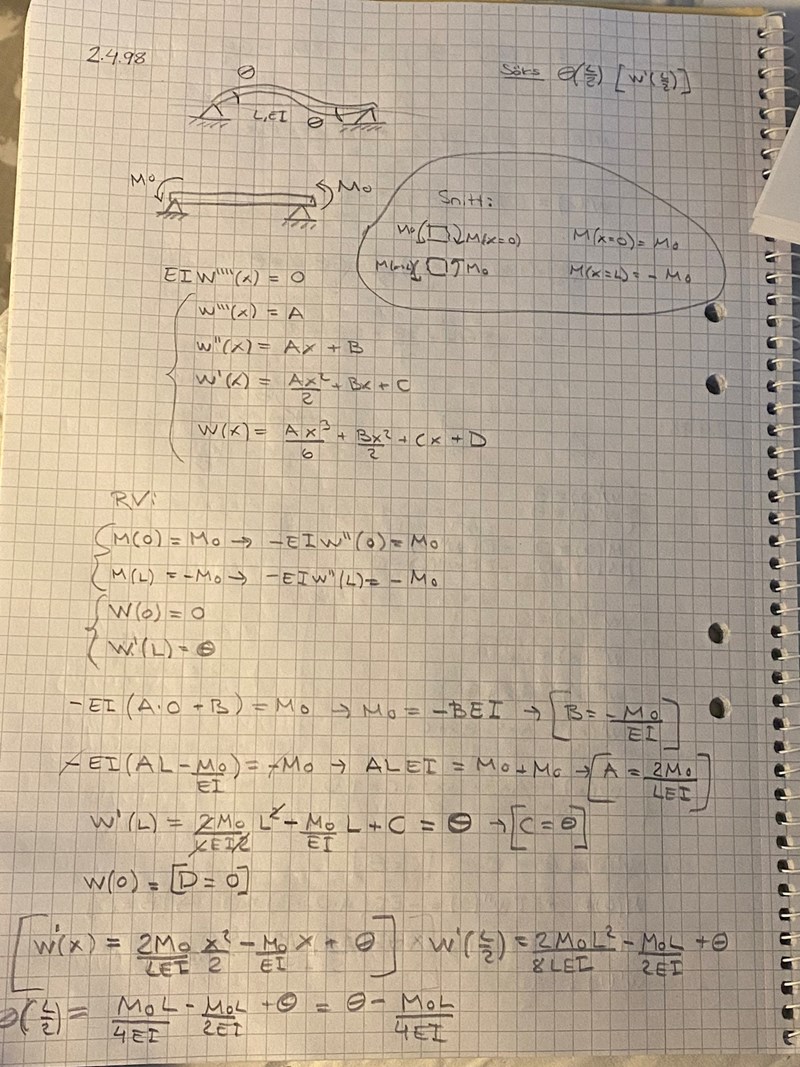 2.4.98
Söks Θ(L/2) [W'(L/2)]
Θ
L,EI
Θ
M₀ M₀
Snitt:
M₀ M(x=0) M(x=0) = M₀
M(x=L) M₀ M(x=L) = - M₀
EIW''''(x) = 0
W'''(x) = A
W''(x) = Ax + B
W'(x) = Ax²/2 + Bx + C
W(x) = Ax³/6 + Bx²/2 + Cx + D
RV:
M(0) = M₀ → -EIW''(0) = M₀
M(L) = -M₀ → -EIW''(L) = - M₀
W(0) = 0
W'(L) = Θ
-EI(A·0 + B) = M₀ → M₀ = -BEI → [B = -M₀/EI]
-EI(AL - M₀/EI) = -M₀ → ALEI = M₀ + M₀ → [A = 2M₀/LEI]
W'(L) = 2M₀/LEI2 L² - M₀/EI L + C = Θ → [C = Θ]
W(0) = [D = 0]
[W'(x) = 2M₀/LEI x²/2 - M₀/EI x + Θ] W'(L/2) = 2M₀L²/8LEI - M₀L/2EI + Θ
Θ(L/2) = M₀L/4EI - M₀L/2EI + Θ = Θ - M₀L/4EI